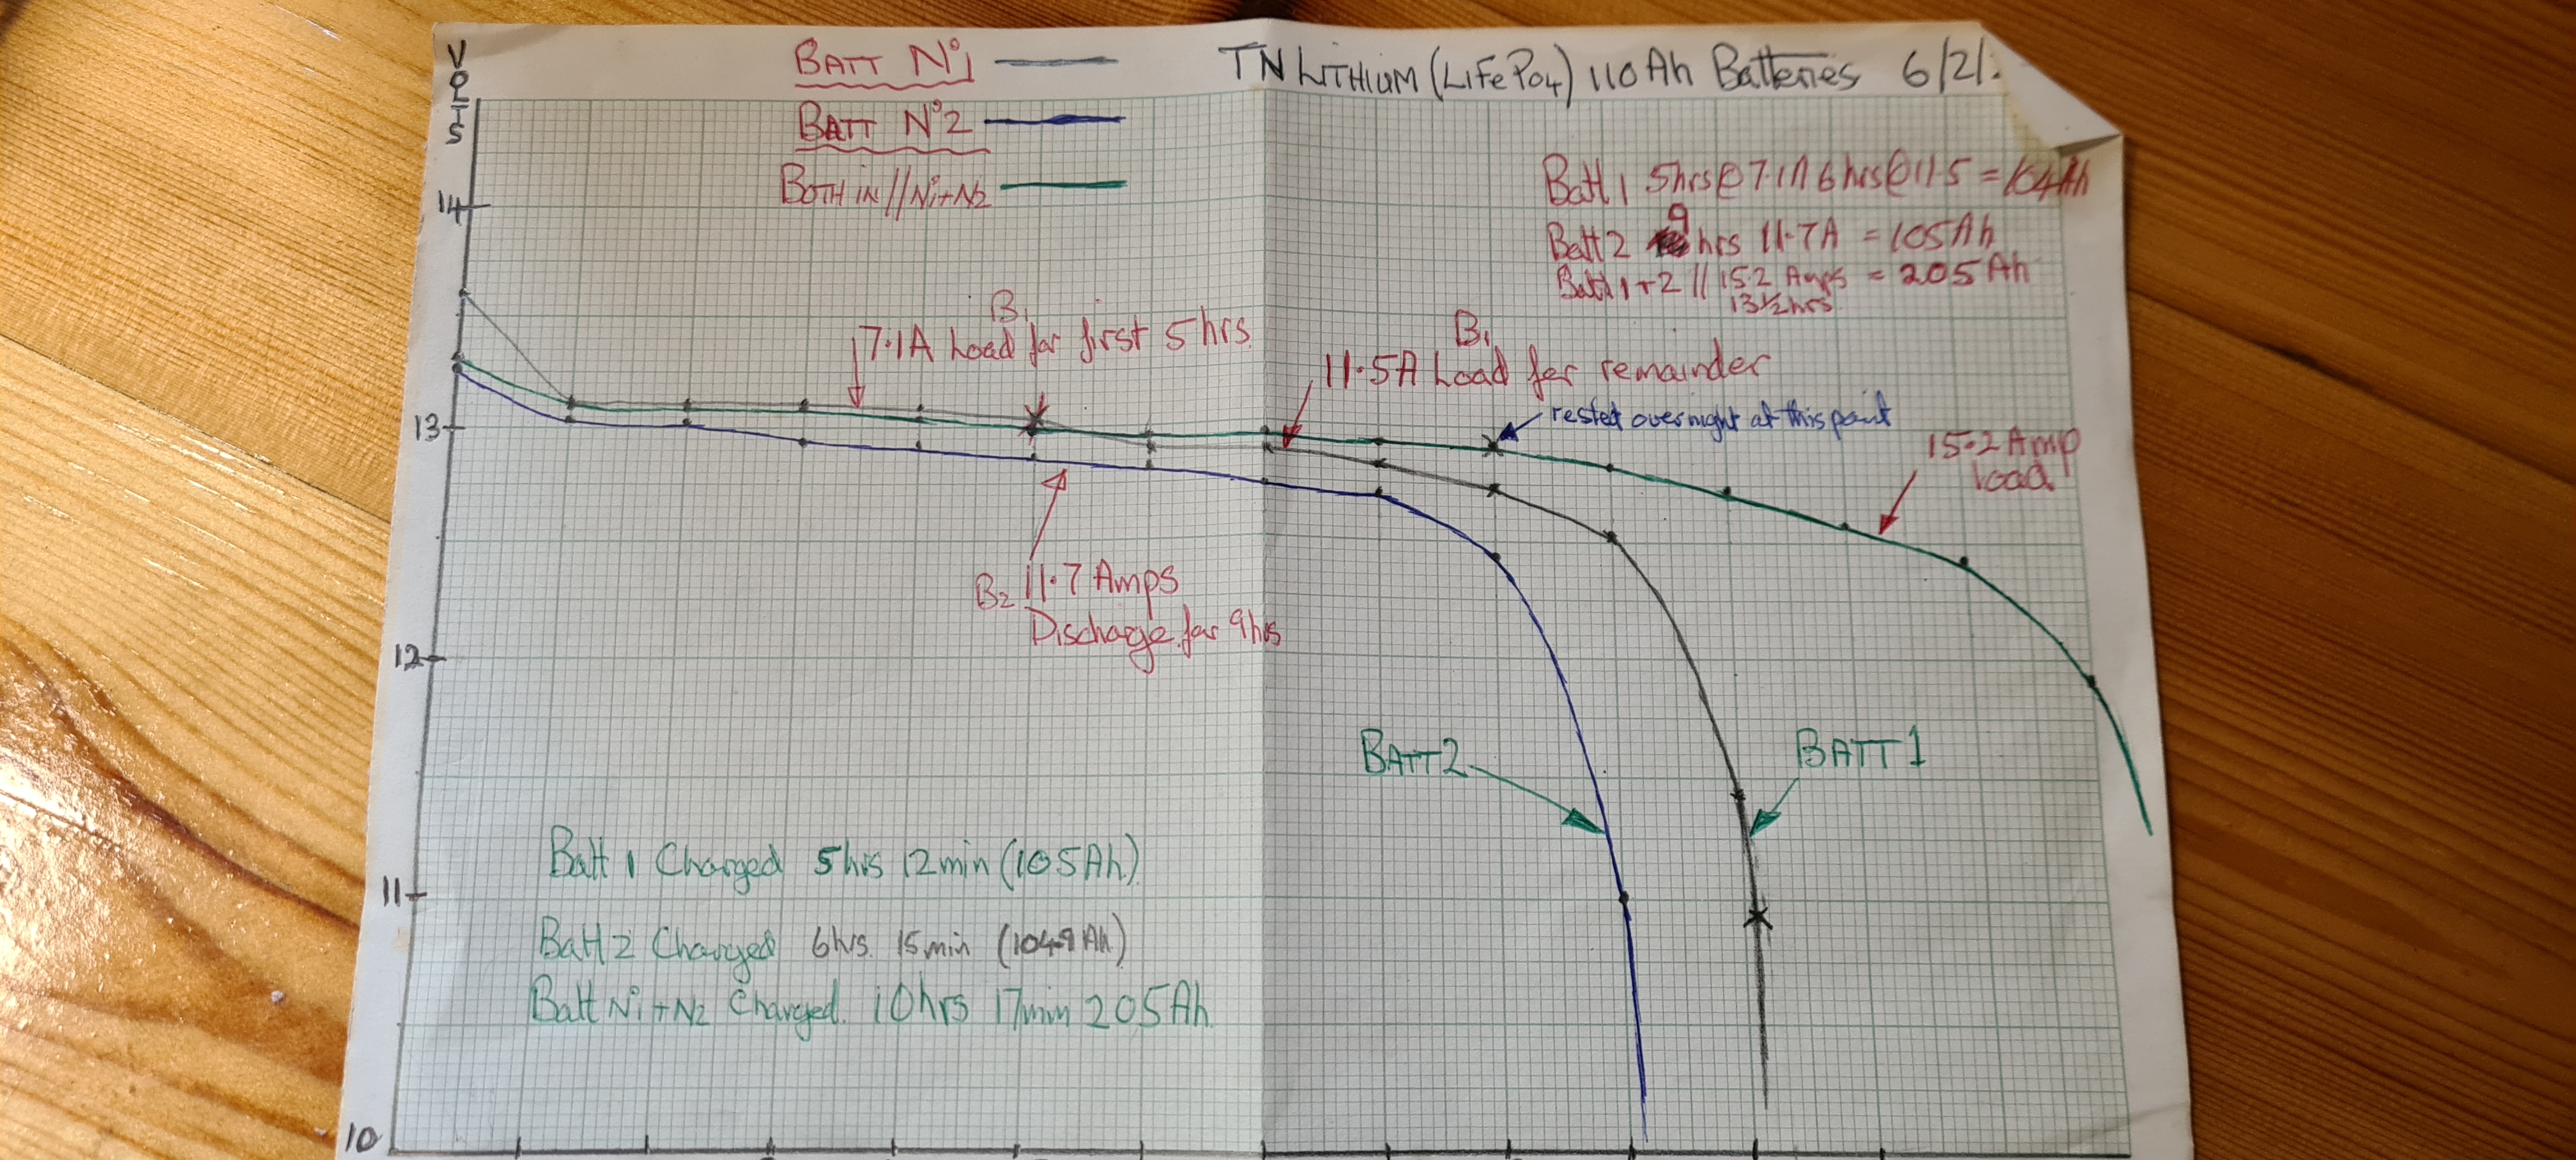 VOLTS
BATT Nº1
TN LITHIUM (LiFePo4) 110Ah Batteries 6/2/
BATT Nº2
BOTH IN // N1+N2
14
Batt 1 5hrs@7.1A 6hrs@11.5 = 104Ah
Batt 2 9 hrs 11.7A = 105Ah
Batt 1+2 // 15.2 Amps = 205 Ah
13½hrs
B1
7.1A Load for first 5 hrs
B1
11.5A Load for remainder
rested overnight at this point
13
15.2 Amp
load
B2 11.7 Amps
Discharge for 9hrs
12
BATT 2
BATT 1
Batt 1 Charged 5hrs 12min (105Ah)
11
Batt 2 Charged 6hrs. 15min (104.9Ah)
Batt N1+N2 Charged. 10hrs 17min 205Ah.
10